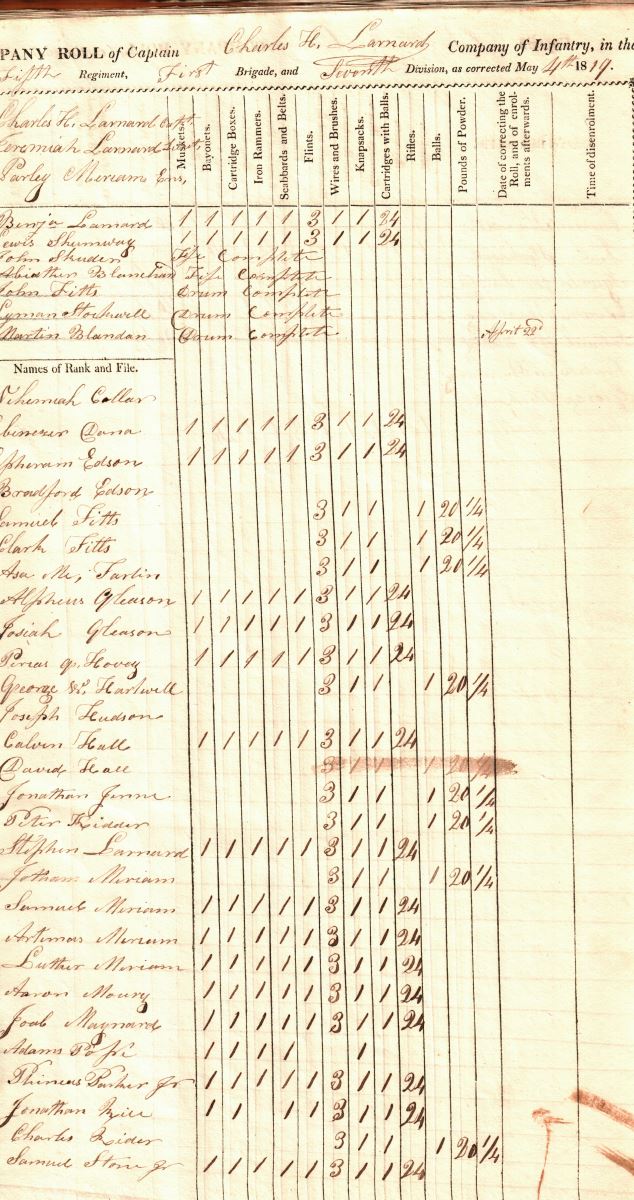 PANY ROLL of Captain Charles H. Larnard Company of Infantry, in the
Fifth Regiment, First Brigade, and Division, as corrected May 4th 1819.
Charles H. Larnard Capt.
Jeremiah Larnard Lieut.
Parley Meriam Ens,
Muskets.
Bayonets.
Cartridge Boxes.
Iron Rammers.
Scabbards and Belts.
Flints.
Wires and Brushes.
Knapsacks.
Cartridges with Balls.
Rifles.
Balls.
Pounds of Powder.
Date of correcting the Roll, and of enrol- ments afterwards.
Time of disenrolment.
Benja Larnard 1 1 1 1 1 3 1 1 24
Lewis Shumway 1 1 1 1 1 3 1 1 24
John Fife Complete
Abiather Fife Complete
John Fitts Drum Complete
Lyman Stockwell Drum Complete
Martin Blandan Drum Complete April 22d
Names of Rank and File.
Nehemiah Collar
Ebenezer Dana 1 1 1 1 1 3 1 1 24
Epheram Edson 1 1 1 1 1 3 1 1 24
Bradford Edson
Samuel Fitts 3 1 1 1 20 1/4
Clark Fitts 3 1 1 1 20 1/4
Asa Mc, Farlin 3 1 1 1 20 1/4
Alpheus Gleason 1 1 1 1 1 3 1 1 24
Josiah Gleason 1 1 1 1 1 3 1 1 24
Hovey 1 1 1 1 1 3 1 1 24
George W. Hartwell 3 1 1 1 20 1/4
Joseph Hudson
Calvin Hall 1 1 1 1 1 3 1 1 24
David Hall 3 1 1 1 20 1/4
Jonathan Jenne 3 1 1 1 20 1/4
Peter Kidder 3 1 1 1 20 1/4
Stephen Larnard 1 1 1 1 1 3 1 1 24
Jotham Meriam 3 1 1 1 20 1/4
Samuel Meriam 1 1 1 1 1 3 1 1 24
Artimas Meriam 1 1 1 1 1 3 1 1 24
Luther Meriam 1 1 1 1 1 3 1 1 24
Aaron Moury 1 1 1 1 1 3 1 1 24
Joab Maynard 1 1 1 1 1 3 1 1 24
Adams 1 1 1 1 1
Thomas Parker Jr 1 1 1 1 1 3 1 1 24
Jonathan Rice 1 1 1 1 3 1 1 24
Charles Rider 3 1 1 1 20 1/4
Samuel Stone Jr 1 1 1 1 1 3 1 1 24